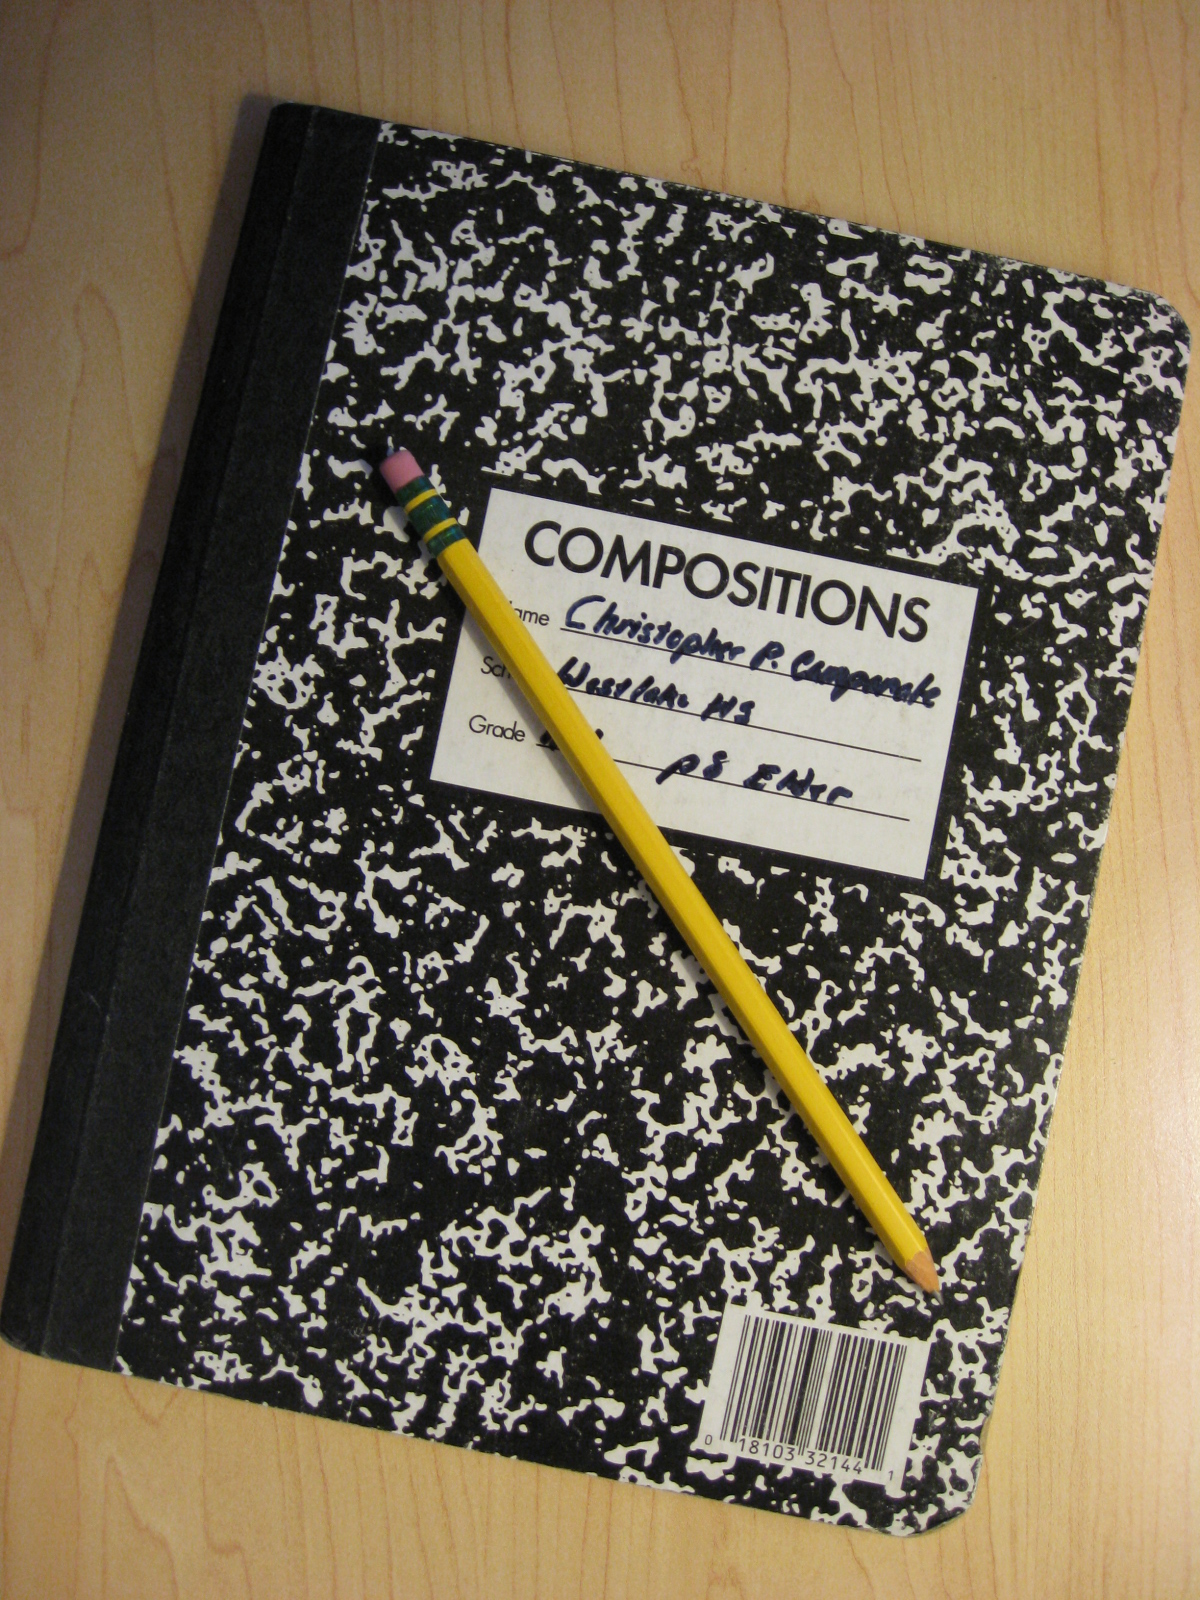 COMPOSITIONS
Name Christopher P. Camporale
Westlake HS
Grade p8
0 18103 32144 1